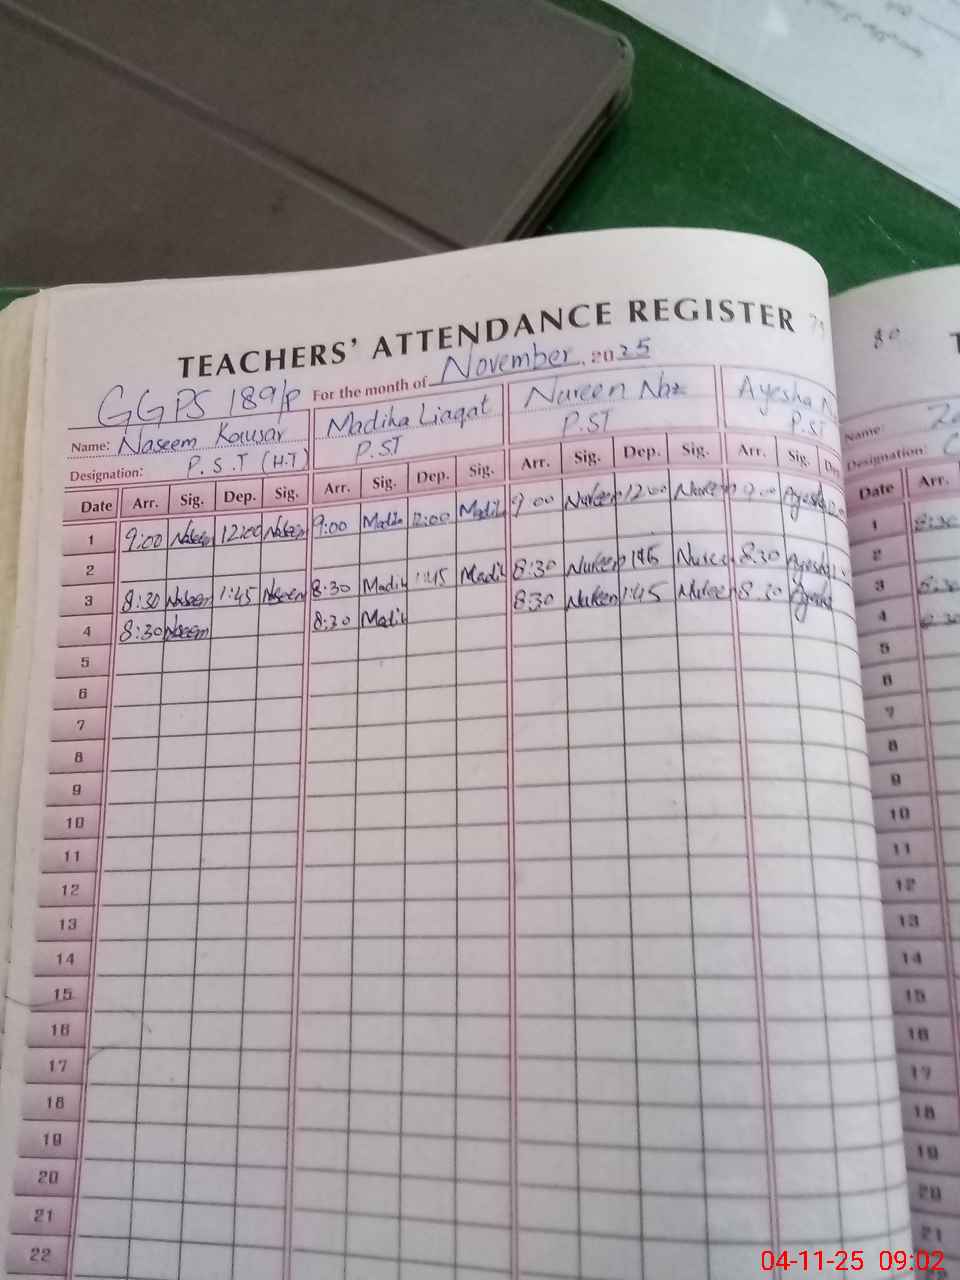 TEACHERS' ATTENDANCE REGISTER
GGPS 189/P For the month of November, 2025
Name: Naseem Kousar Madiha Liaqat Nureen Naz Ayesha
Designation: P.S.T (H.T) P.ST P.ST P.ST
Date Arr. Sig. Dep. Sig. Arr. Sig. Dep. Sig. Arr. Sig. Dep. Sig. Arr. Sig.
1 9:00 Naseem 12:00 Naseem 9:00 Madih 12:00 Madih 9:00 Nureen 12:00 Nureen 9:00 Ayesha
2
3 8:30 Naseem 1:45 Naseem 8:30 Madih 1:45 Madih 8:30 Nureen 1:45 Nureen 8:30 Ayesha
4 8:30 Naseem 8:30 Madih 8:30 Nureen 1:45 Nureen 8:30 Ayesha
5
6
7
8
9
10
11
12
13
14
15
16
17
18
19
20
21
22
80
Name:
Designation:
Date Arr.
1 8:30
2
3 8:30
4 8:30
5
6
7
8
9
10
11
12
13
14
15
16
17
18
19
20
21
04-11-25 09:02